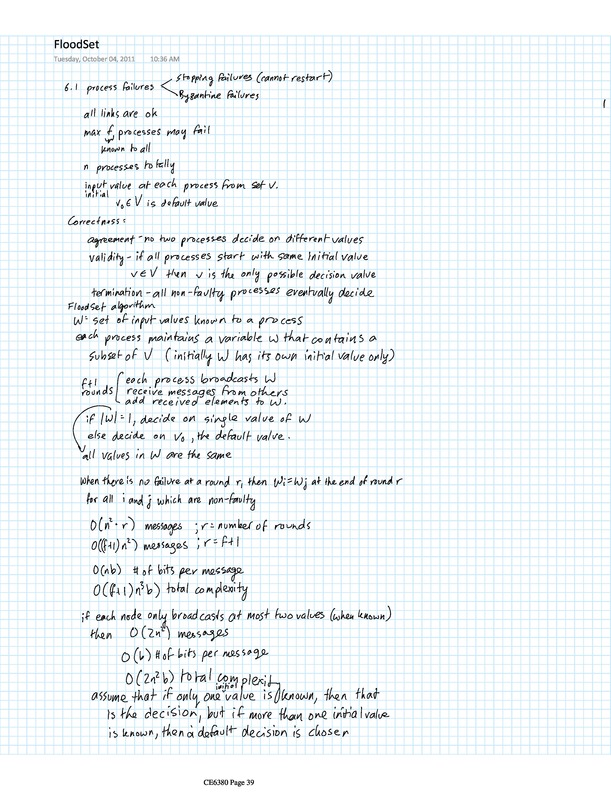 FloodSet
Tuesday, October 04, 2011 10:36 AM
6.1 process failures < Stopping failures (cannot restart)
Byzantine failures
1
all links are ok
max f processes may fail
known to all
n processes totally
input value at each process from set V.
initial
v₀ ∈ V is default value
Correctness:
agreement - no two processes decide on different values
validity - if all processes start with same initial value
v ∈ V then v is the only possible decision value
termination - all non-faulty processes eventually decide
FloodSet algorithm
W = set of input values known to a process
each process maintains a variable W that contains a
subset of V (initially W has its own initial value only)
f+1 each process broadcasts W
rounds receive messages from others
add received elements to W.
if |W|=1, decide on single value of W
else decide on v₀, the default value.
all values in W are the same
When there is no failure at a round r, then Wi=Wj at the end of round r
for all i and j which are non-faulty
O(n²·r) messages ; r = number of rounds
O((f+1)n²) messages ; r = f+1
O(nb) # of bits per message
O((f+1)n³b) total complexity
if each node only broadcasts at most two values (when known)
then O(2n²) messages
O(b) # of bits per message
O(2n²b) total complexity
initial
assume that if only one value is known, then that
is the decision, but if more than one initial value
is known, then a default decision is chosen
CE6380 Page 39